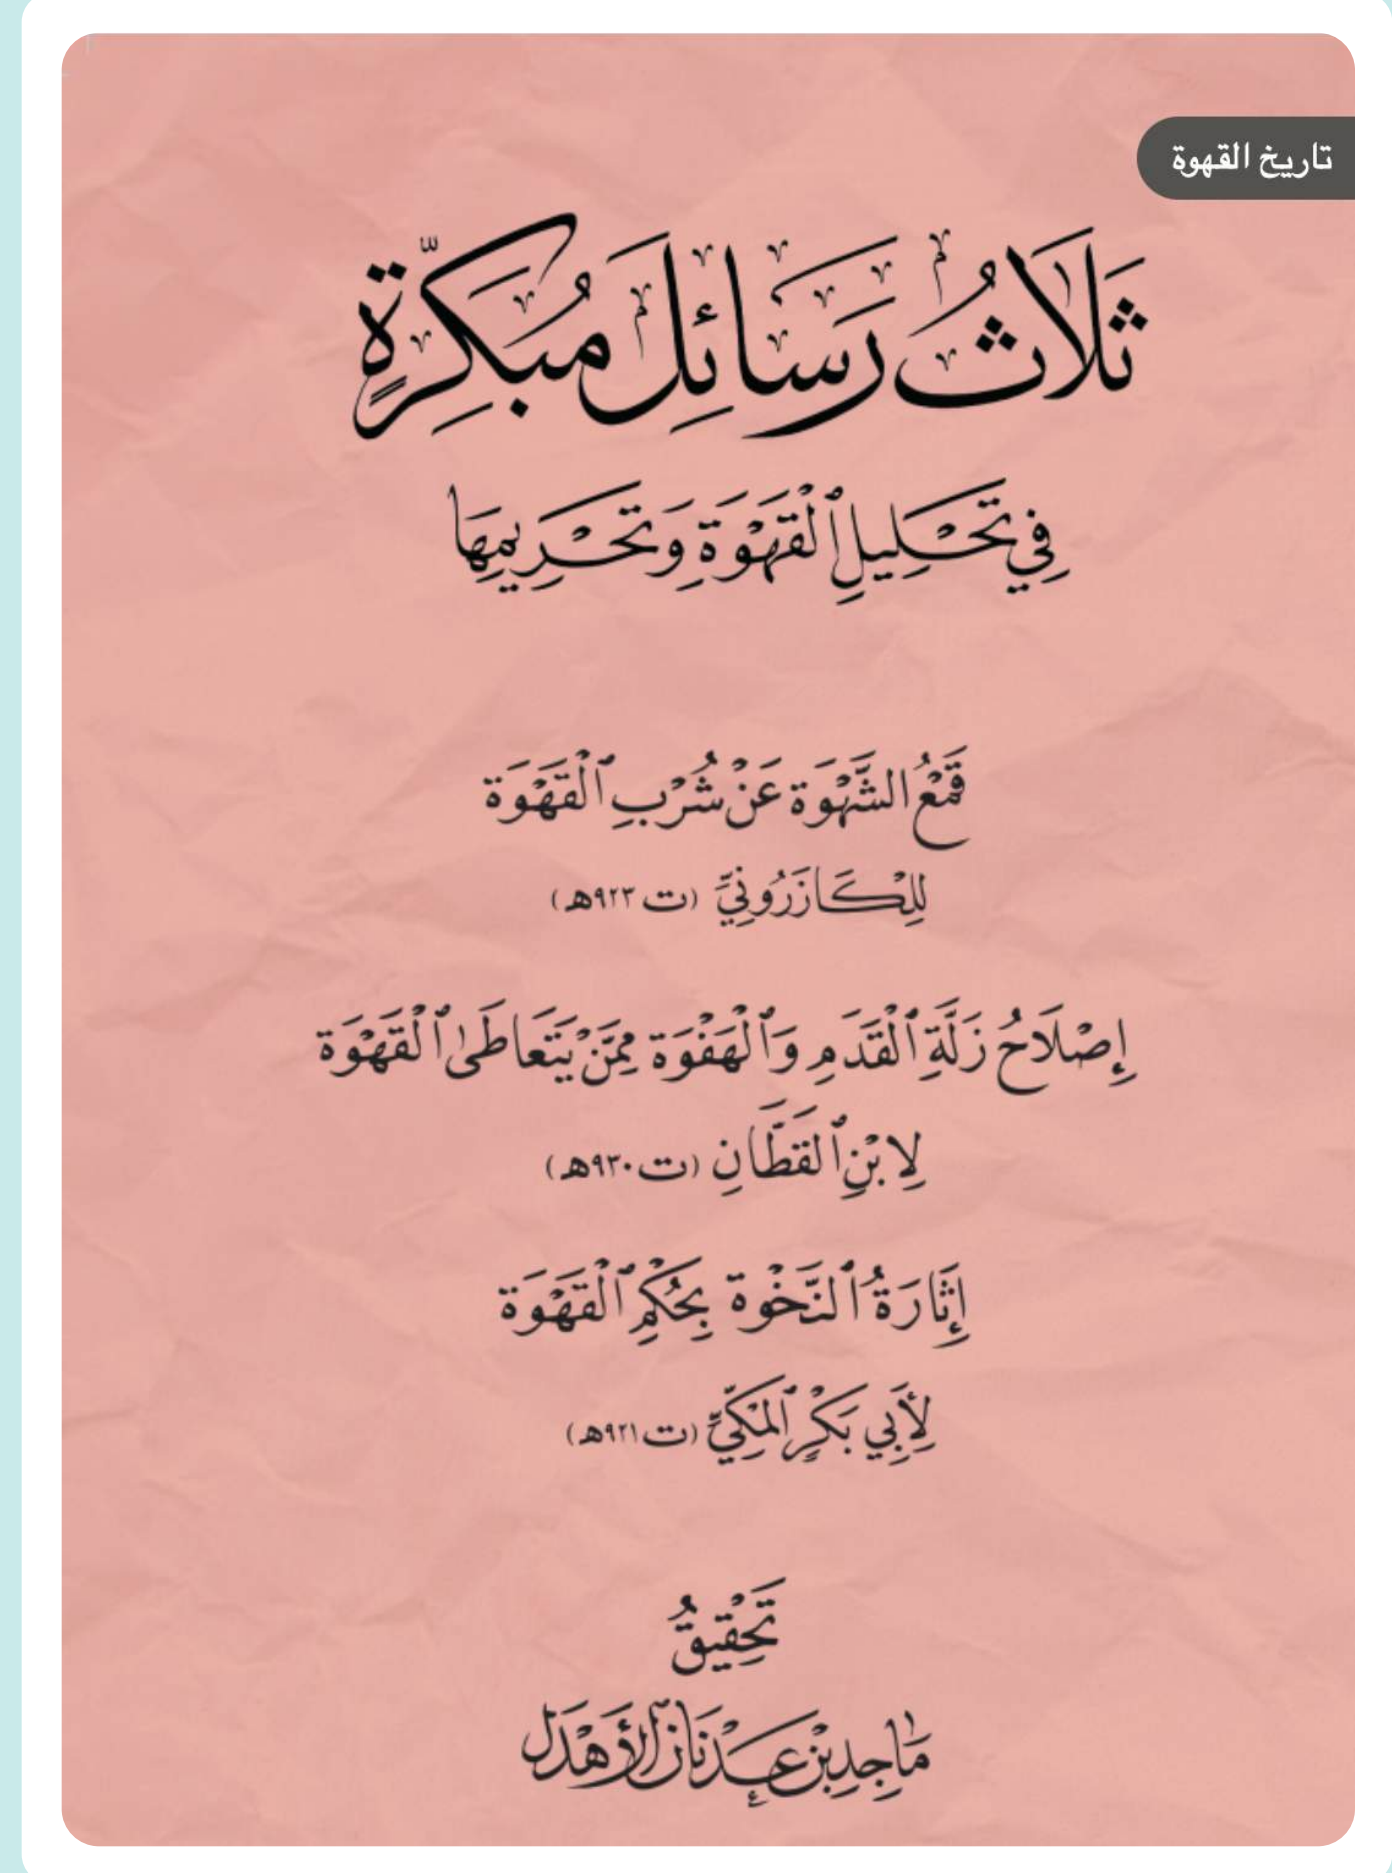 تاريخ القهوة
ثَلَاثُ رَسَائِلَ مُبَكِّرَةٍ
فِي تَحْلِيلِ ٱلْقَهْوَةِ وَتَحْرِيمِهَا
قَمْعُ الشَّهْوَة عَنْ شُرْبِ ٱلْقَهْوَة
لِلْكَازَرُونِيِّ (ت ٩٢٣هـ)
إِصْلَاحُ زَلَّةِ ٱلْقَدَمِ وَٱلْهَفْوَة مِمَّنْ يَتَعَاطَى ٱلْقَهْوَة
لِابْنِ ٱلقَطَّانِ (ت ٩٣٠هـ)
إِثَارَةُ ٱلنَّخْوَة بِحُكْمِ ٱلْقَهْوَة
لِأَبِي بَكْرٍ ٱلمَكِّيِّ (ت ٩٢١هـ)
تَحْقِيقُ
مَاجِدِ بْنِ عَدْنَانَ ٱلأَهْدَل